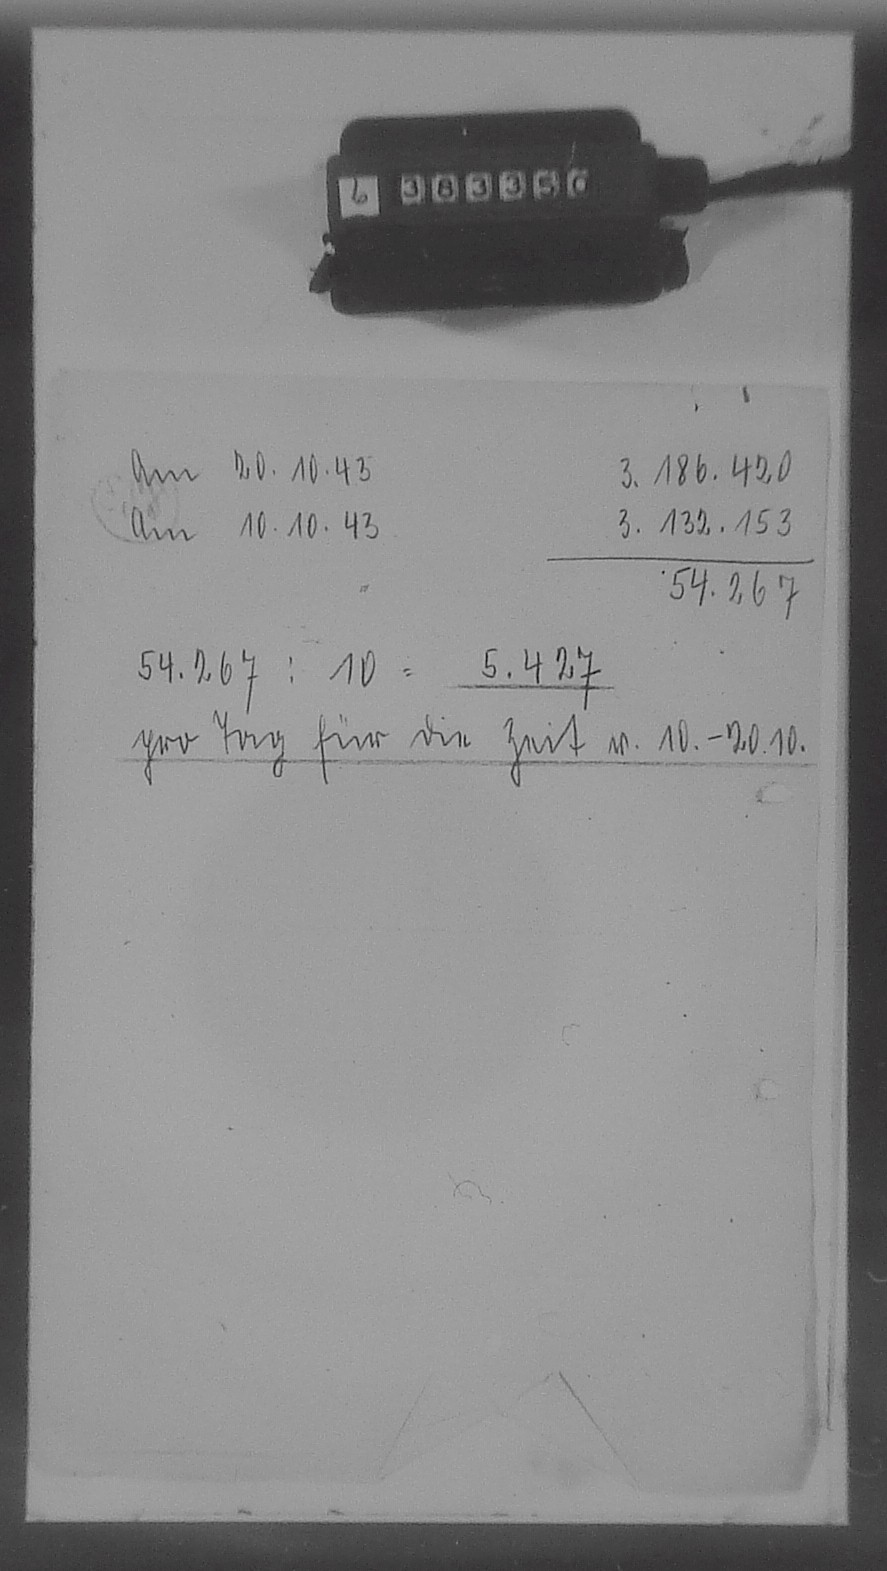 6 383350
Am 20.10.43 3.186.420
Am 10.10.43 3.132.153
54.267
54.267 : 10 = 5.427
pro Tag für die Zeit v. 10.-20.10.